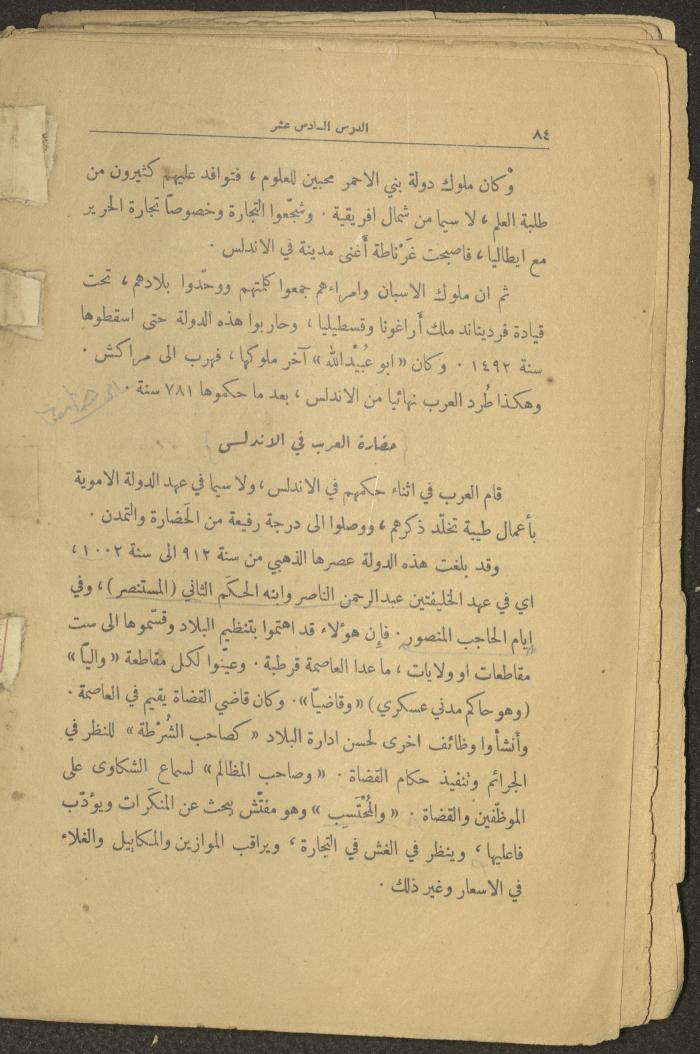 ٨٤
الدرس السادس عشر
وْكان ملوك دولة بني الاحمر محبين للعلوم ، فتوافد عليهم كثيرون من
طلبة العلم ، لا سيما من شمال افريقية . وشجّعوا التجارة وخصوصاً تجارة الحرير
مع ايطاليا ، فاصبحت غَرْناطة أغنى مدينة في الاندلس .
ثم ان ملوك الاسبان وامراءهم جمعوا كلمتهم ووحّدوا بلادهم ، تحت
قيادة فرديناند ملك أراغونا وقسطيليا ، وحاربوا هذه الدولة حتى اسقطوها
سنة ١٤٩٢ . وكان « ابو عُبيْدالله » آخر ملوكها ، فهرب الى مراكش .
وهكذا طُرد العرب نهائيا من الاندلس ، بعد ما حكموها ٧٨١ سنة .
( حضارة العرب في الاندلس )
قام العرب في اثناء حكمهم في الاندلس ، ولا سيما في عهد الدولة الاموية
بأعمال طيبة تخلّد ذكرهم ، ووصلوا الى درجة رفيعة من الحَضارة والتمدن .
وقد بلغت هذه الدولة عصرها الذهبي من سنة ٩١٢ الى سنة ١٠٠٢ ،
اي في عهد الخليفتين عبد الرحمن الناصر وابنه الحكَم الثاني ( المستنصر ) ، وفي
ايام الحاجب المنصور . فإن هؤلاء قد اهتموا بتنظيم البلاد وقسّموها الى ست
مقاطعات او ولايات ، ما عدا العاصمة قرطبة . وعيّنوا لكل مقاطعة « والياً »
( وهو حاكم مدني عسكري ) « وقاضياً » . وكان قاضي القضاة يقيم في العاصمة .
وأنشأوا وظائف اخرى لحسن ادارة البلاد « كصاحب الشُرْطة » للنظر في
الجرائم وتنفيذ حكام القضاة . « وصاحب المظالم » لسماع الشكاوى على
الموظّفين والقضاة . « والمُحْتَسِب » وهو مفتّش يبحث عن المنكَرات ويؤدّب
فاعليها ، وينظر في الغش في التجارة ، ويراقب الموازين والمكاييل والغلاء
في الاسعار وغير ذلك .